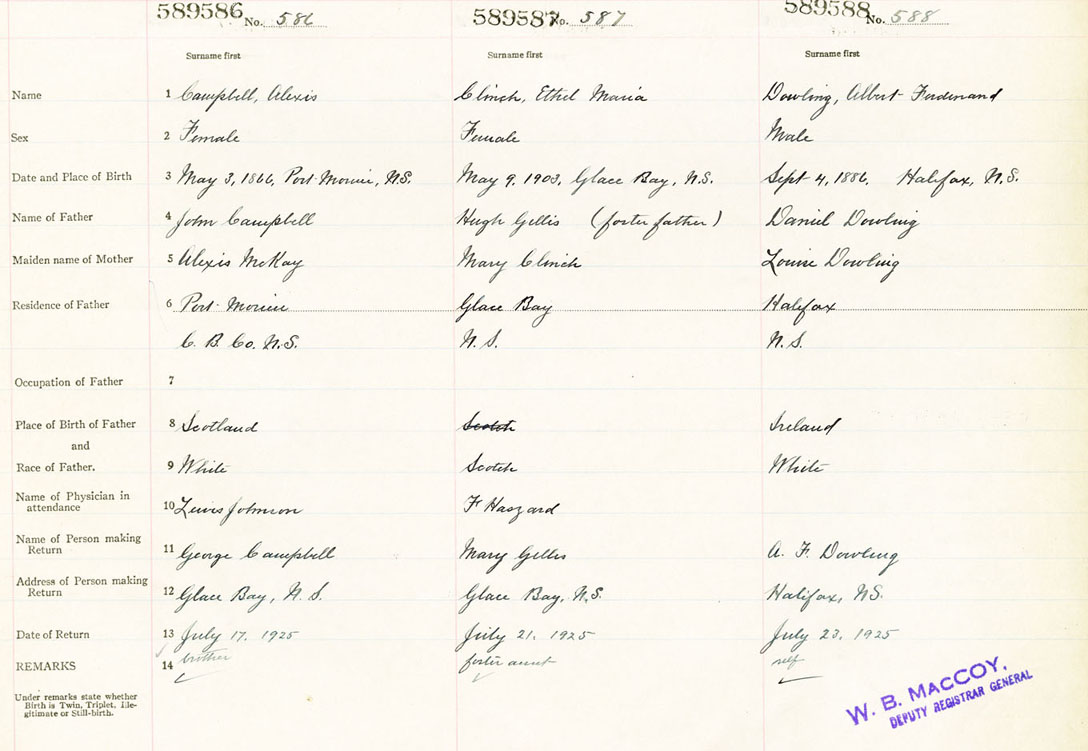 589586 No. 586 589587 No. 587 589588 No. 588
Surname first Surname first Surname first
Name 1 Campbell, Alexis Clinch, Ethel Maria Dowling, Albert Ferdinand
Sex 2 Female Female Male
Date and Place of Birth 3 May 3, 1866, Port Morien, N.S. May 9, 1903, Glace Bay, N.S. Sept 4, 1886, Halifax, N.S.
Name of Father 4 John Campbell Hugh Gillis (foster father) Daniel Dowling
Maiden name of Mother 5 Alexis McKay Mary Clinch Louise Dowling
Residence of Father 6 Port Morien Glace Bay Halifax
C. B. Co. N.S. N. S. N. S.
Occupation of Father 7
Place of Birth of Father 8 Scotland Scotch Ireland
and
Race of Father. 9 White Scotch White
Name of Physician in
attendance 10 Lewis Johnson F Haszard
Name of Person making
Return 11 George Campbell Mary Gillis A. F. Dowling
Address of Person making
Return 12 Glace Bay, N. S. Glace Bay, N.S. Halifax, N.S.
Date of Return 13 July 17, 1925 July 21, 1925 July 23, 1925
REMARKS 14 brother foster aunt self
Under remarks state whether
Birth is Twin, Triplet, Ille-
gitimate or Still-birth.
W. B. MACCOY,
DEPUTY REGISTRAR GENERAL